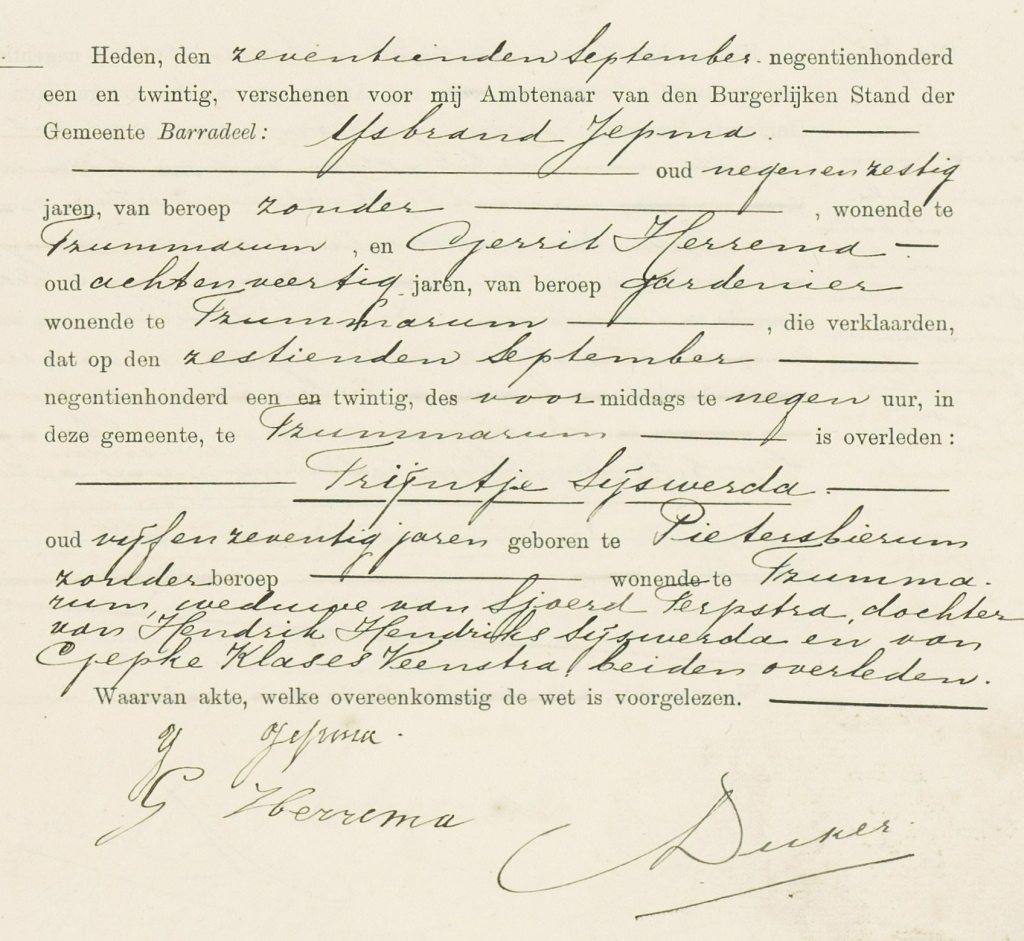 Heden, den zeventienden September. negentienhonderd
een en twintig, verschenen voor mij Ambtenaar van den Burgerlijken Stand der
Gemeente Barradeel: IJsbrand Jepma.
oud negenenzestig
jaren, van beroep zonder , wonende te
Tzummarum , en Gerrit Herrema
oud achtenveertig jaren, van beroep gardenier
wonende te Tzummarum , die verklaarden,
dat op den zestienden September
negentienhonderd een en twintig, des voor middags te negen uur, in
deze gemeente, te Tzummarum is overleden:
Trijntje Sijswerda.
oud vijfenzeventig jaren geboren te Pietersbierum
zonder beroep wonende te Tzumma-
rum, weduwe van Sjoerd Terpstra, dochter
van Hendrik Hendriks Sijswerda en van
Gepke Klases Veenstra, beiden overleden.
Waarvan akte, welke overeenkomstig de wet is voorgelezen.
Y Jepma.
G Herrema
Duker